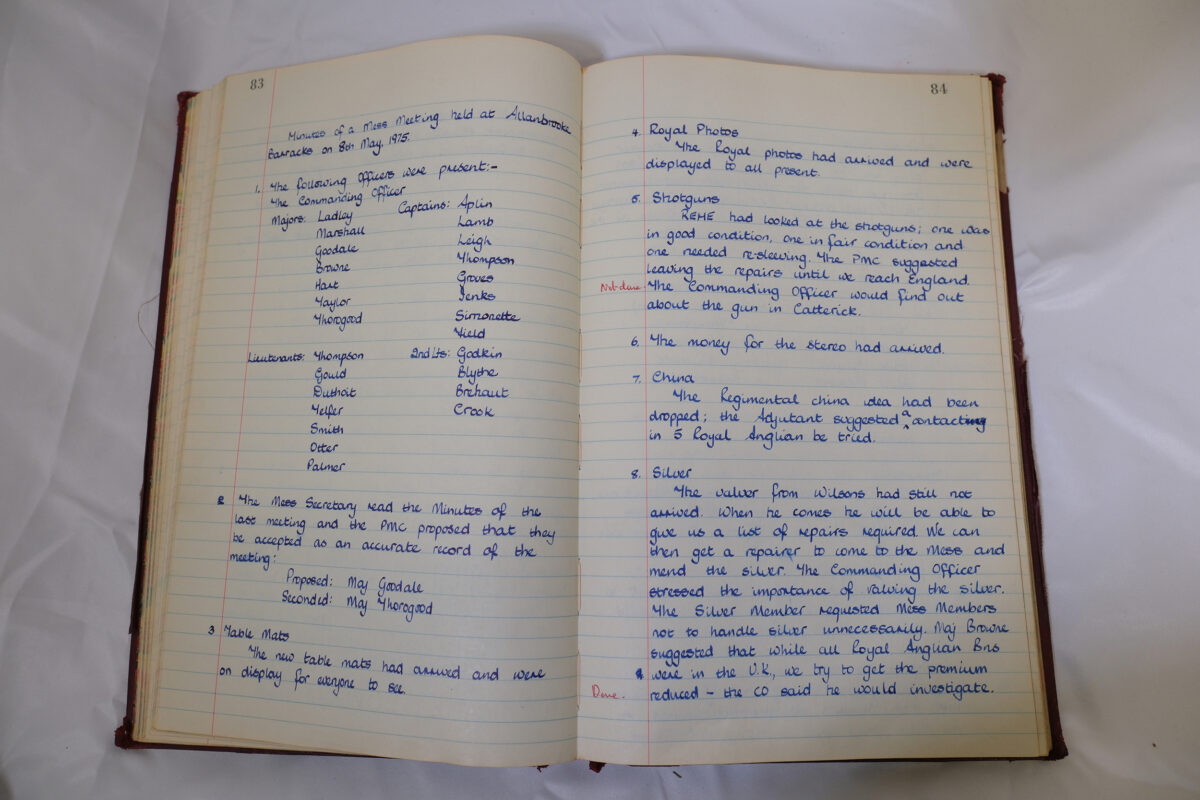 83
Minutes of a Mess Meeting held at Allanbrooke
Barracks on 8th May, 1975.
1. The following Officers were present:-
The Commanding Officer
Majors: Ladley Captains: Aplin
Marshall Lamb
Goodale Leigh
Browne Thompson
Hart Groves
Taylor Jenks
Thorogood Simonette
Yield
Lieutenants: Thompson 2nd Lts: Godkin
Gould Blythe
Duthoit Brehaut
Telfer Crook
Smith
Otter
Palmer
2 The Mess Secretary read the Minutes of the
last meeting and the PMC proposed that they
be accepted as an accurate record of the
meeting:
Proposed: Maj Goodale
Seconded: Maj Thorogood
3 Table Mats
The new table mats had arrived and were
on display for everyone to see.
84
4. Royal Photos
The Royal photos had arrived and were
displayed to all present.
5. Shotguns
REME had looked at the shotguns; one was
in good condition, one in fair condition and
one needed re-sleeving. The PMC suggested
leaving the repairs until we reach England.
Not done The Commanding Officer would find out
about the gun in Catterick.
6. The money for the stereo had arrived.
7. China
The Regimental china idea had been
dropped; the Adjutant suggested a contact
in 5 Royal Anglian be tried.
8. Silver
The valuer from Wilsons had still not
arrived. When he comes he will be able to
give us a list of repairs required. We can
then get a repairer to come to the Mess and
mend the silver. The Commanding Officer
stressed the importance of valuing the silver.
The Silver Member requested Mess Members
not to handle silver unnecessarily. Maj Browne
suggested that while all Royal Anglian Bns
were in the U.K., we try to get the premium
Done. reduced - the CO said he would investigate.